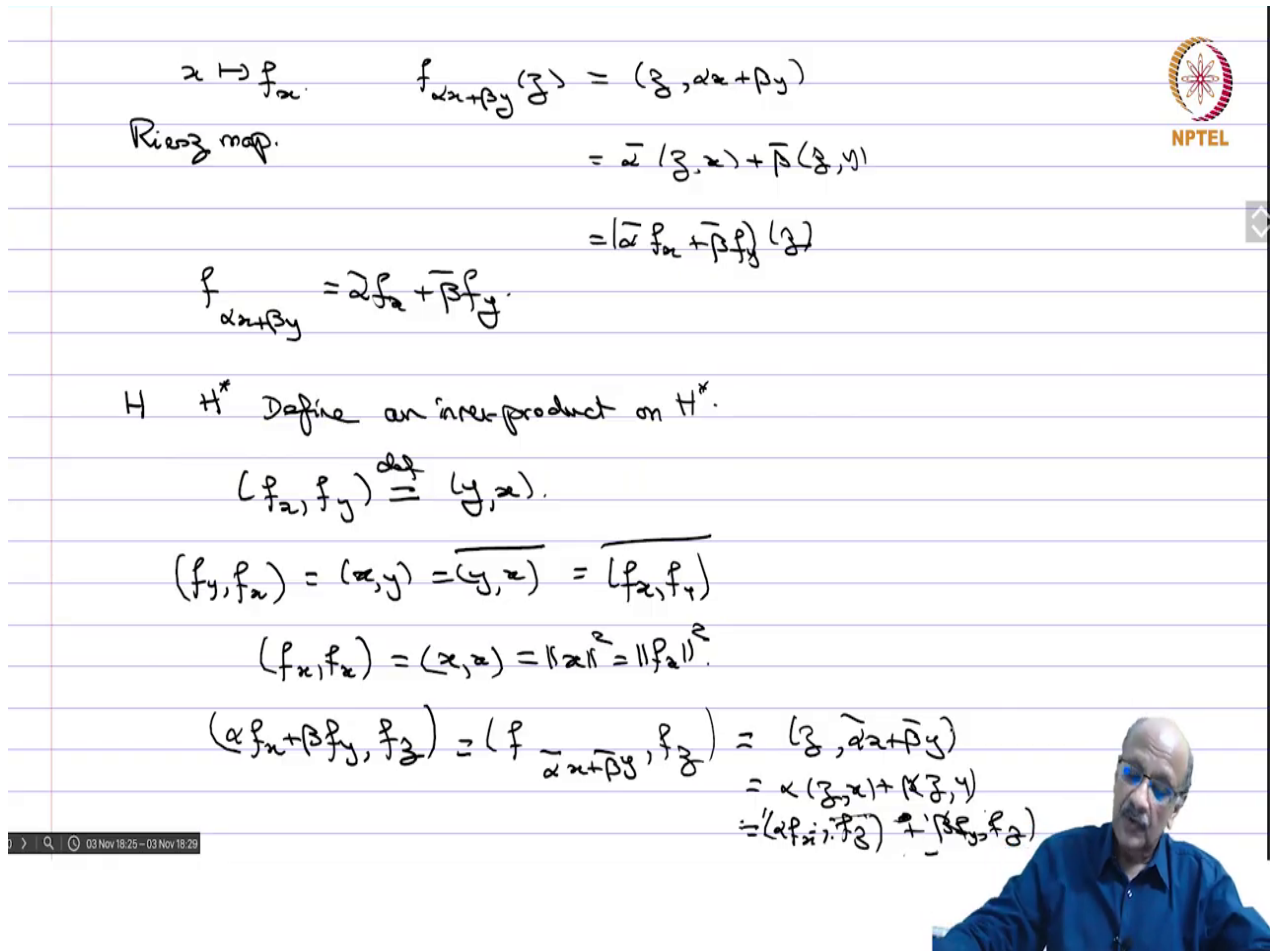 x ↦ f_x. f_{αx+βy}(z) = (z, αx+βy)
NPTEL
Riesz map.
= ᾱ (z, x) + β̄ (z, y)
= (ᾱ f_x + β̄ f_y) (z)
f_{αx+βy} = ᾱ f_x + β̄ f_y.
H H* Define an inner-product on H*.
(f_x, f_y) def= (y, x).
(f_y, f_x) = (x, y) = \overline{(y, x)} = \overline{(f_x, f_y)}
(f_x, f_x) = (x, x) = ||x||² = ||f_x||².
(αf_x + βf_y, f_z) = (f_{ᾱx+β̄y}, f_z) = (z, ᾱx + β̄y)
= α (z, x) + β(z, y)
= (αf_x, f_z) + (βf_y, f_z)
03 Nov 18:25 – 03 Nov 18:29